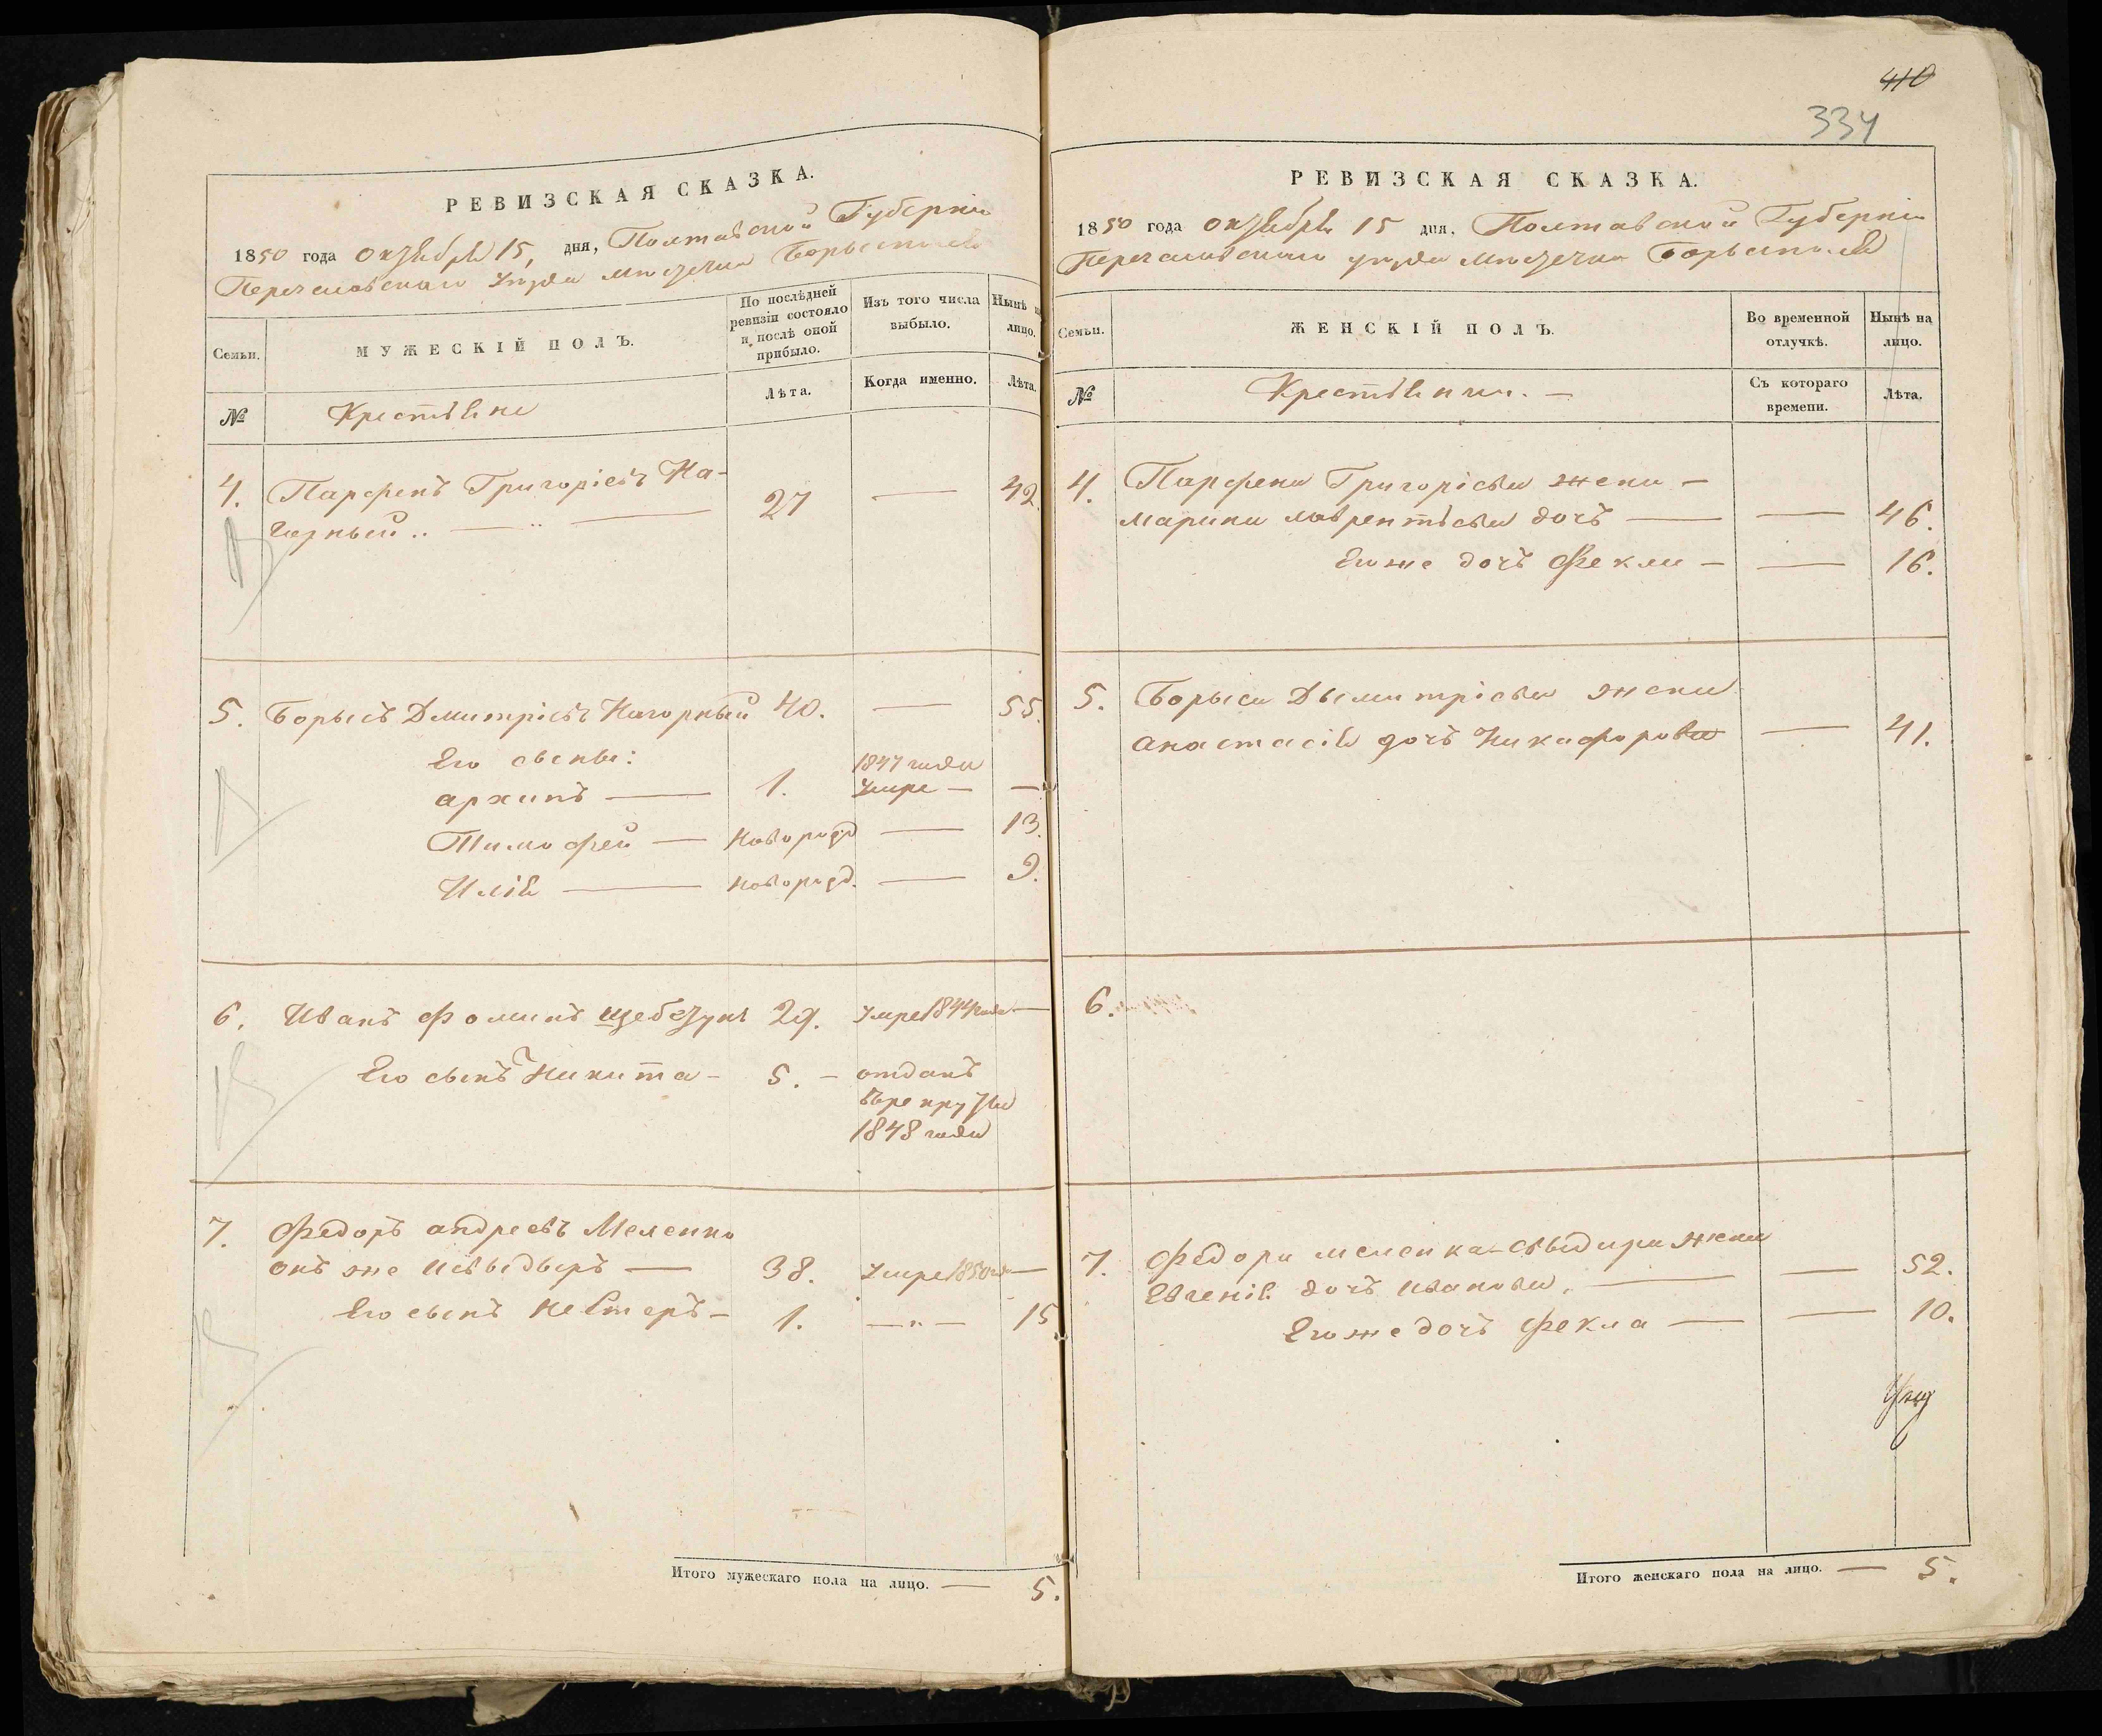 РЕВИЗСКАЯ СКАЗКА.
1850 года октября 15, дня, Полтавской Губерніи
Переяславскаго уезда местечка Борысполя
Семьи.
МУЖЕСКІЙ ПОЛЪ.
По послѣдней ревизіи состояло и послѣ оной прибыло.
Изъ того числа выбыло.
Нынѣ на лицо.
№
Крестьяне
Лѣта.
Когда именно.
Лѣта.
4. Парфенъ Григоріевъ На-
горный .. — 27 — 42.
5. Борысъ Дмитріевъ Нагорный 40. — 55.
Его сыны:
1847 года
архипъ — 1. Умре — —
Тимофей — новорожд — 13.
Илія — новорожд. — 9.
6. Иванъ Фоминъ Щебетунъ 29. Умре 1844 года —
Его сынъ Никита — 5. — отданъ
въ рекруты
1848 года
7. Федоръ андреевъ Меленко
онъ же — 38. Умре 1850 года —
Его сынъ Нестеръ — 1. — „ — 15
Итого мужескаго пола на лицо. — 5.
410
334
РЕВИЗСКАЯ СКАЗКА.
1850 года октября 15 дня, Полтавской Губерніи
Переяславскаго уезда местечка Борысполя
Семьи.
ЖЕНСКІЙ ПОЛЪ.
Во временной отлучкѣ.
Нынѣ на лицо.
№
Крестьянки. —
Съ котораго времени.
Лѣта.
4. Парфена Григоріева жена —
марина лаврентьева дочь — — 46.
Его же дочь Фекла — — 16.
5. Борыса Дымитріева жена
анастасія дочь Никифорова — 41.
6.
7. Федора меленка жена
Евгенія дочь иванова, — — 52.
Его же дочь Фекла — — 10.
Итого женскаго пола на лицо. — 5.